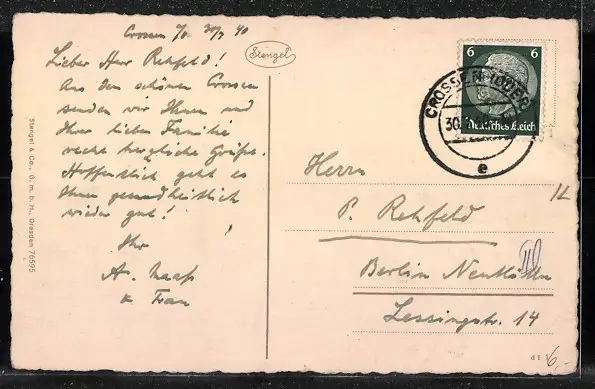 Crossen /O. 30/7 40
Lieber Herr Rehfeld!
Aus dem schönen Crossen
senden wir Ihnen und
Ihrer lieben Familie
recht herzliche Grüße.
Hoffentlich geht es
Ihnen gesundheitlich
wieder gut!
Ihr
A. Maaß
& Frau
Stengel
Stengel & Co., G. m. b. H., Dresden 76595
6 6
Deutsches Reich
CROSSEN (ODER)
30.
e
Herrn
P. Rehfeld
Berlin Neukölln
Lessingstr. 14
6,-